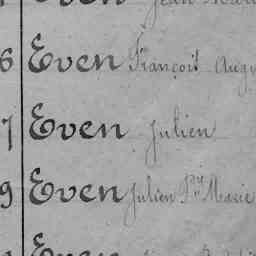 Even Jean Marie
6 Even François Augu
7 Even Julien
9 Even Julien P.re Marie
Even